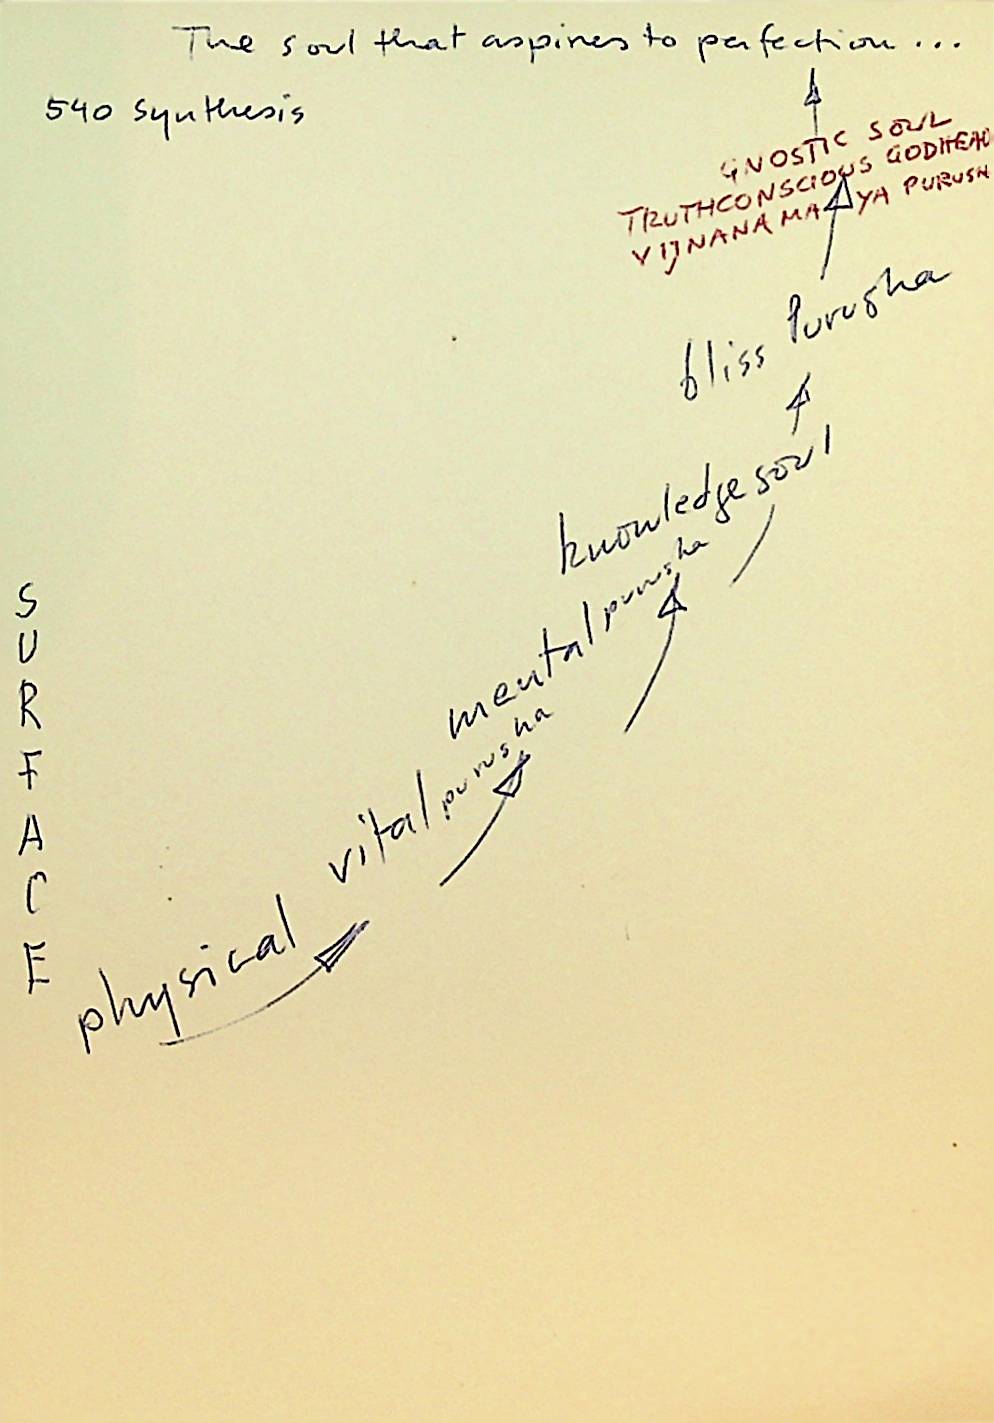 The soul that aspires to perfection...
540 Synthesis
GNOSTIC SOUL
TRUTHCONSCIOUS GODHEAD
VIJNANAMAYA PURUSH
bliss Purusha
knowledge soul
mental purusha
vital purusha
physical
SURFACE